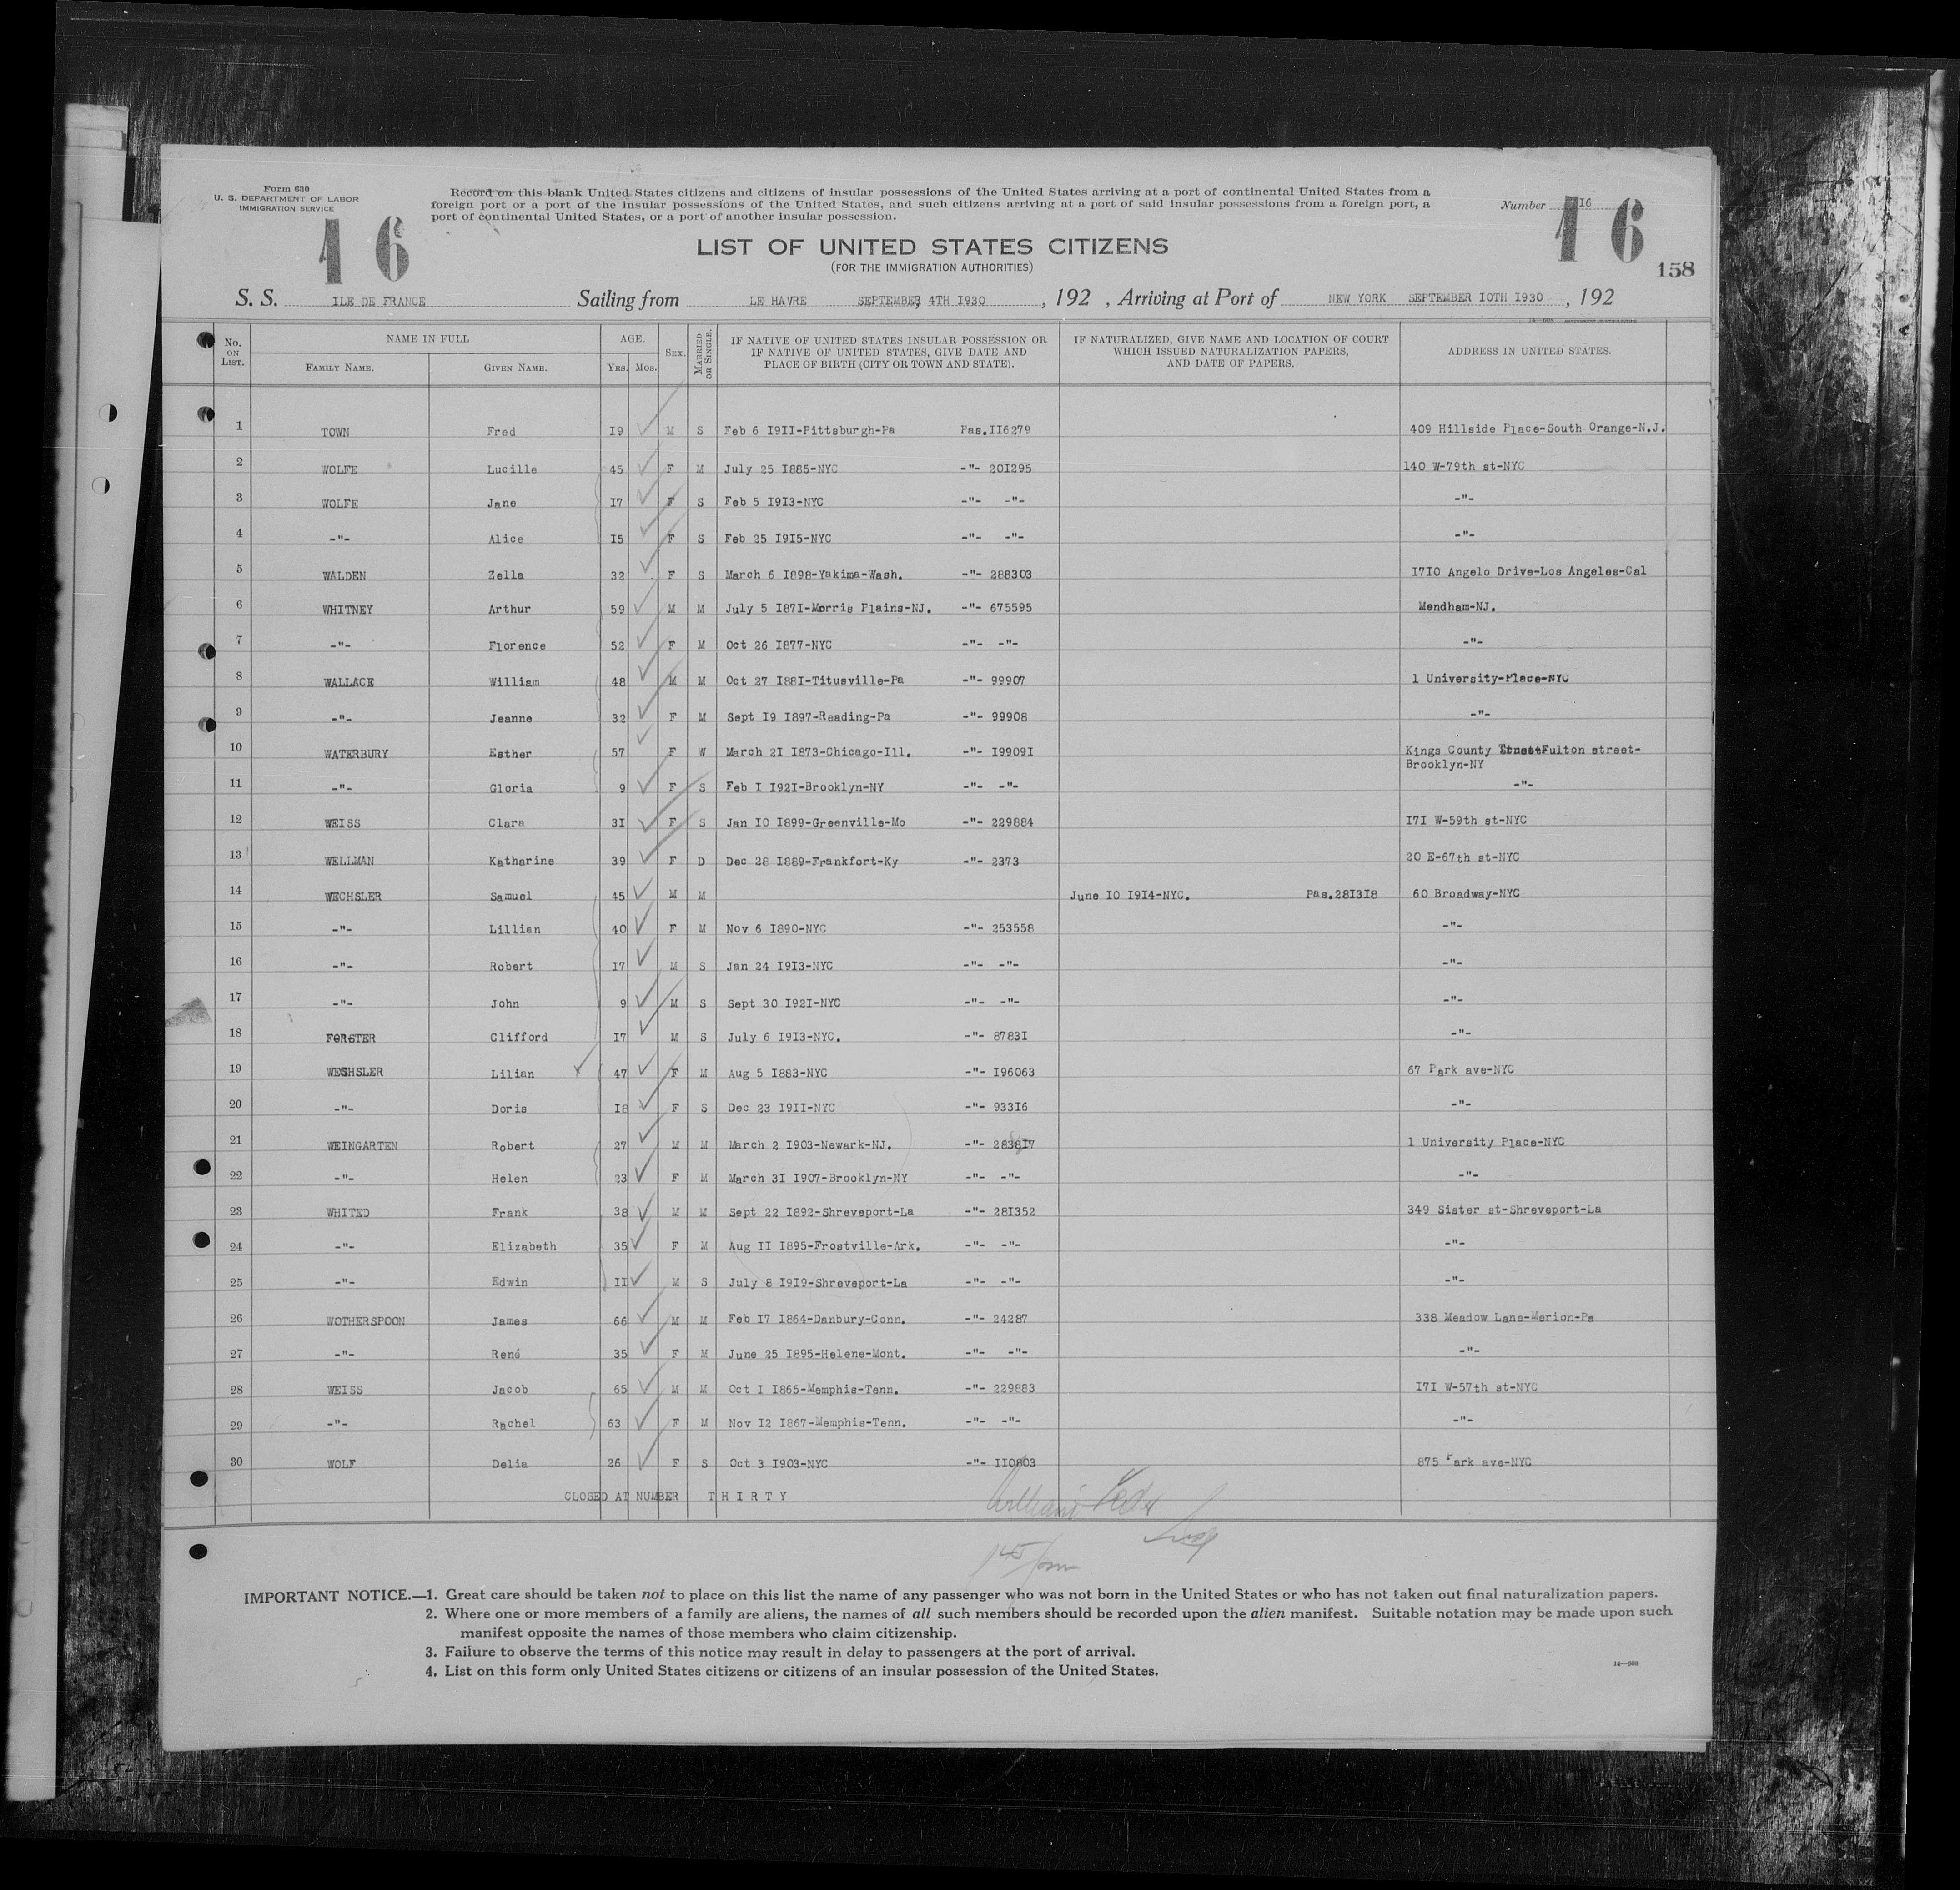 Form 630
U. S. DEPARTMENT OF LABOR
IMMIGRATION SERVICE
Record on this blank United States citizens and citizens of insular possessions of the United States arriving at a port of continental United States from a
foreign port or a port of the insular possessions of the United States, and such citizens arriving at a port of said insular possessions from a foreign port, a
port of continental United States, or a port of another insular possession.
Number 16
16
16
158
LIST OF UNITED STATES CITIZENS
(FOR THE IMMIGRATION AUTHORITIES)
S. S. ILE DE FRANCE Sailing from LE HAVRE SEPTEMBER, 4TH I930, 192 , Arriving at Port of NEW YORK SEPTEMBER IOTH I930, 192
No. ON LIST. NAME IN FULL FAMILY NAME. GIVEN NAME. AGE. YRS. MOS. SEX. MARRIED OR SINGLE. IF NATIVE OF UNITED STATES INSULAR POSSESSION OR IF NATIVE OF UNITED STATES, GIVE DATE AND PLACE OF BIRTH (CITY OR TOWN AND STATE). IF NATURALIZED, GIVE NAME AND LOCATION OF COURT WHICH ISSUED NATURALIZATION PAPERS, AND DATE OF PAPERS. ADDRESS IN UNITED STATES.
1 TOWN Fred I9 M S Feb 6 I9II-Pittsburgh-Pa Pas.II6279 409 Hillside Place-South Orange-N.J.
2 WOLFE Lucille 45 F M July 25 I885-NYC -"- 20I295 140 W-79th st-NYC
3 WOLFE Jane I7 F S Feb 5 I9I3-NYC -"- -"- -"-
4 -"- Alice I5 F S Feb 25 I9I5-NYC -"- -"- -"-
5 WALDEN Zella 32 F S March 6 I898-Yakima-Wash. -"- 288303 I7IO Angelo Drive-Los Angeles-Cal
6 WHITNEY Arthur 59 M M July 5 I87I-Morris Plains-NJ. -"- 675595 Mendham-NJ.
7 -"- Florence 52 F M Oct 26 I877-NYC -"- -"- -"-
8 WALLACE William 48 M M Oct 27 I88I-Titusville-Pa -"- 99907 1 University-Place-NYC
9 -"- Jeanne 32 F M Sept I9 I897-Reading-Pa -"- 99908 -"-
10 WATERBURY Esther 57 F W March 2I I873-Chicago-Ill. -"- I9909I Kings County Fulton street-
Brooklyn-NY
11 -"- Gloria 9 F S Feb I I92I-Brooklyn-NY -"- -"- -"-
12 WEISS Clara 3I F S Jan IO I899-Greenville-Mo -"- 229884 I7I W-59th st-NYC
13 WELLMAN Katharine 39 F D Dec 28 I889-Frankfort-Ky -"- 2373 20 E-67th st-NYC
14 WECHSLER Samuel 45 M M June IO I9I4-NYC. Pas.28I3I8 60 Broadway-NYC
15 -"- Lillian 40 F M Nov 6 I890-NYC -"- 253558 -"-
16 -"- Robert I7 M S Jan 24 I9I3-NYC -"- -"- -"-
17 -"- John 9 M S Sept 30 I92I-NYC -"- -"- -"-
18 FORSTER Clifford I7 M S July 6 I9I3-NYC. -"- 8783I -"-
19 WECHSLER Lilian 47 F M Aug 5 I883-NYC -"- I96063 67 Park ave-NYC
20 -"- Doris I8 F S Dec 23 I9II-NYC -"- 933I6 -"-
21 WEINGARTEN Robert 27 M M March 2 I903-Newark-NJ. -"- 2838I7 1 University Place-NYC
22 -"- Helen 23 F M March 3I I907-Brooklyn-NY -"- -"- -"-
23 WHITED Frank 38 M M Sept 22 I892-Shreveport-La -"- 28I352 349 Sister st-Shreveport-La
24 -"- Elizabeth 35 F M Aug II I895-Frostville-Ark. -"- -"- -"-
25 -"- Edwin II M S July 8 I9I9-Shreveport-La -"- -"- -"-
26 WOTHERSPOON James 66 M M Feb I7 I864-Danbury-Conn. -"- 24287 338 Meadow Lane-Merion-Pa
27 -"- René 35 F M June 25 I895-Helene-Mont. -"- -"- -"-
28 WEISS Jacob 65 M M Oct I I865-Memphis-Tenn. -"- 229883 I7I W-57th st-NYC
29 -"- Rachel 63 F M Nov I2 I867-Memphis-Tenn. -"- -"- -"-
30 WOLF Delia 26 F S Oct 3 I903-NYC -"- II0803 875 Park ave-NYC
CLOSED AT NUMBER T H I R T Y
William
Insp
145 pm
IMPORTANT NOTICE.—1. Great care should be taken not to place on this list the name of any passenger who was not born in the United States or who has not taken out final naturalization papers.
2. Where one or more members of a family are aliens, the names of all such members should be recorded upon the alien manifest. Suitable notation may be made upon such
manifest opposite the names of those members who claim citizenship.
3. Failure to observe the terms of this notice may result in delay to passengers at the port of arrival.
4. List on this form only United States citizens or citizens of an insular possession of the United States.